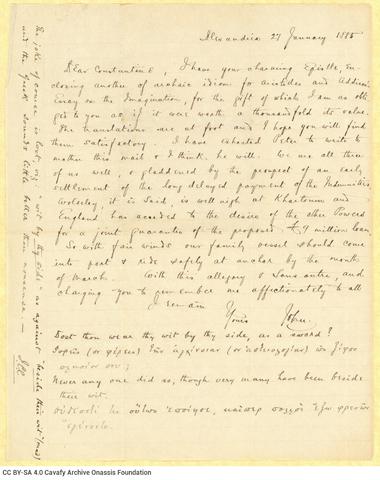 Alexandria 27 January 1885
Dear Constantine, I have your charming Epistle, en-
closing another of archaic idiom for Aristides and Addison's
Essay on the Imagination, for the gift of which I am as obli-
ged to you as if it were worth a thousandfold its value.
The translations are at foot and I hope you will find
them satisfactory. I have exhorted Peter to write to
mother this mail & I think he will. We are all three
of us well, & gladdened by the prospect of an early
settlement of the long delayed payment of the Indemnities.
Wolseley, it is said, is well nigh at Khartoum and
England has acceded to the desire of the other Powers
for a joint guarantee of the proposed £9 million loan.
So with fair winds our family vessel should come
into port & ride safely at anchor by the month
of March. With this allegory & sans autre, and
charging you to remember me affectionately to all
I remain
Yours John.
Dost thou wear thy wit by thy side, as a sword?
Never any one did so, though very many have been beside
their wit.
The joke of course is lost, viz "wit by thy side" as against "beside their wit" (mad)
and the Greek sounds little better than nonsense —
CC BY-SA 4.0 Cavafy Archive Onassis Foundation